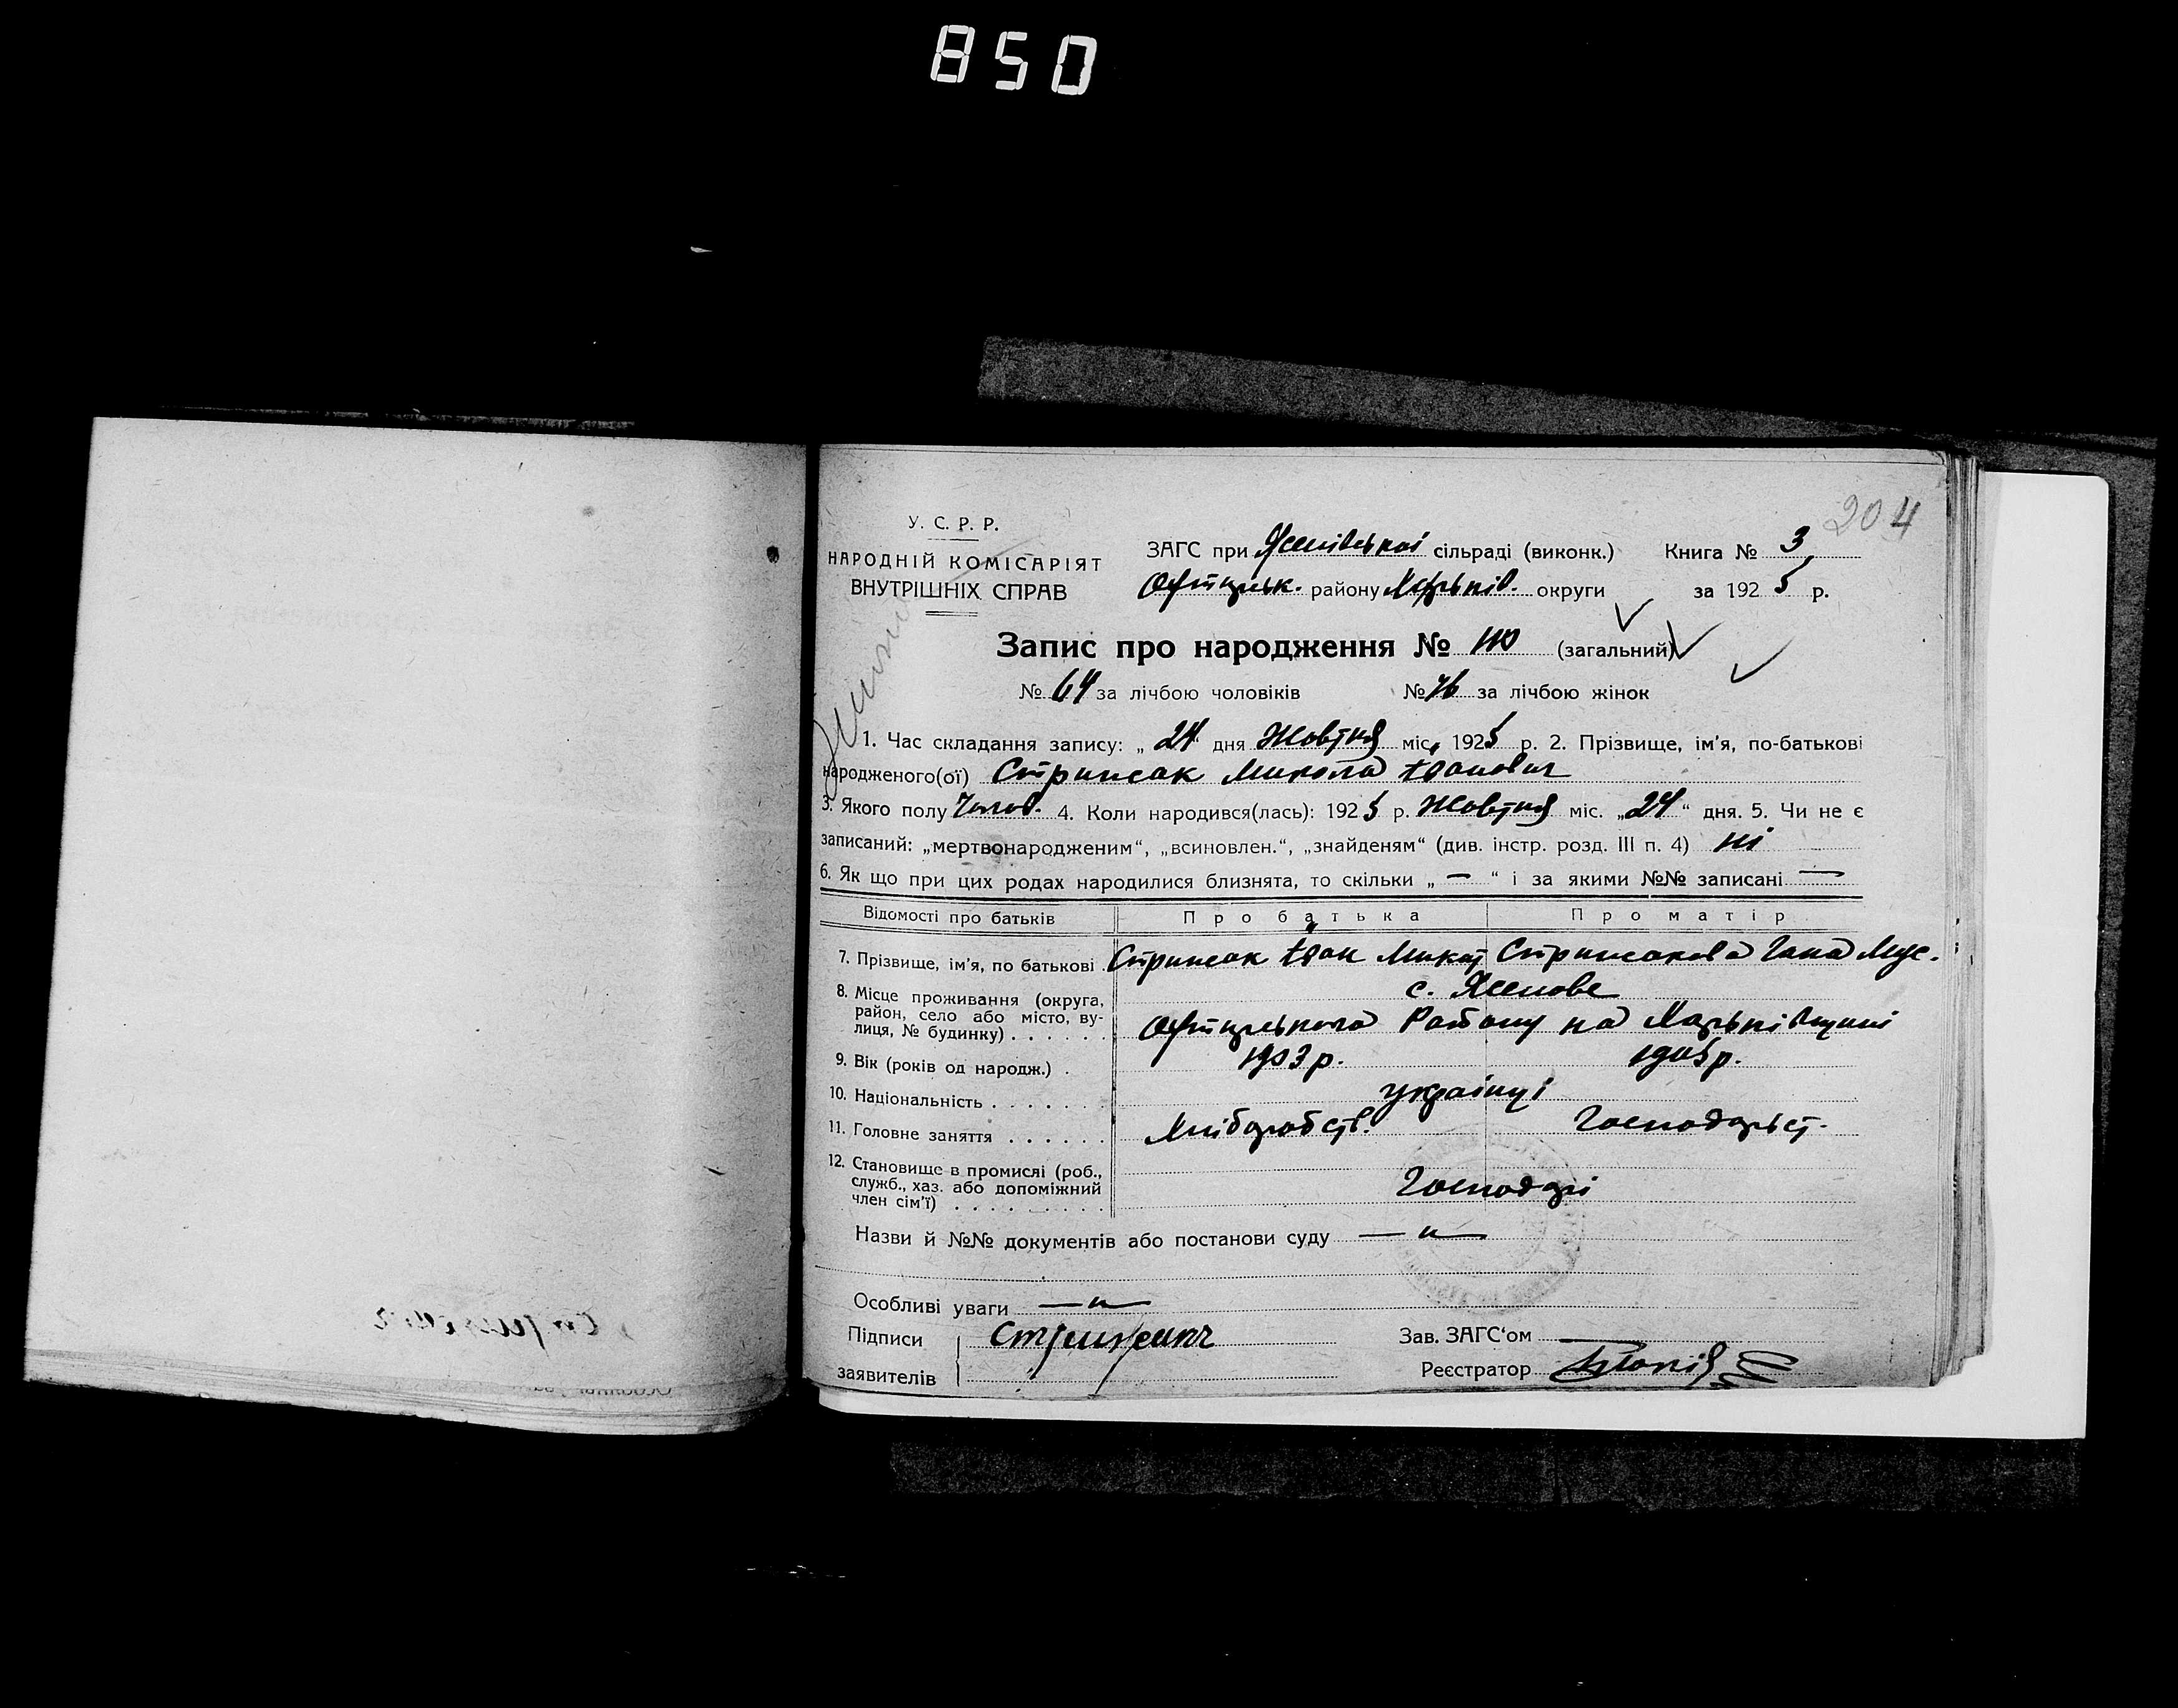 850
204
У. С. Р. Р.
НАРОДНІЙ КОМІСАРІЯТ
ВНУТРІШНІХ СПРАВ
ЗАГС при Ясенівської сільраді (виконк.) Книга № 3
Охтирськ. району Харьків. округи за 1925 р.
Запис про народження № 110 (загальний)
№ 64 за лічбою чоловіків № 46 за лічбою жінок
1. Час складання запису: „24" дня Жовтня міс. 1925 р. 2. Прізвище, ім'я, по-батькові
народженого(ої) Стрижак Микола Іванович
3. Якого полу Чолов. 4. Коли народився(лась): 1925 р. Жовтня міс. „24“ дня. 5. Чи не є
записаний: „мертвонародженим“, „всиновлен.“, „знайденям“ (див. інстр. розд. III п. 4) ні
6. Як що при цих родах народилися близнята, то скільки „—“ і за якими №№ записані —
Відомості про батьків Про батька Про матір
7. Прізвище, ім'я, по батькові Стрижак Іван Микит Стрижакова Гана Мус.
8. Місце проживання (округа, район, село або місто, вулиця, № будинку) с. Ясенове
Охтирського Району на Харьківщині
9. Вік (років од народж.) 1903 р. 1905 р.
10. Національність українці
11. Головне заняття Хліборобств. Господарст.
12. Становище в промислі (роб., служб., хаз. або допоміжний член сім'ї) Господарі
Назви й №№ документів або постанови суду — „ —
Особливі уваги — „ —
Підписи заявителів Стрижак
Зав. ЗАГС'ом
Реєстратор